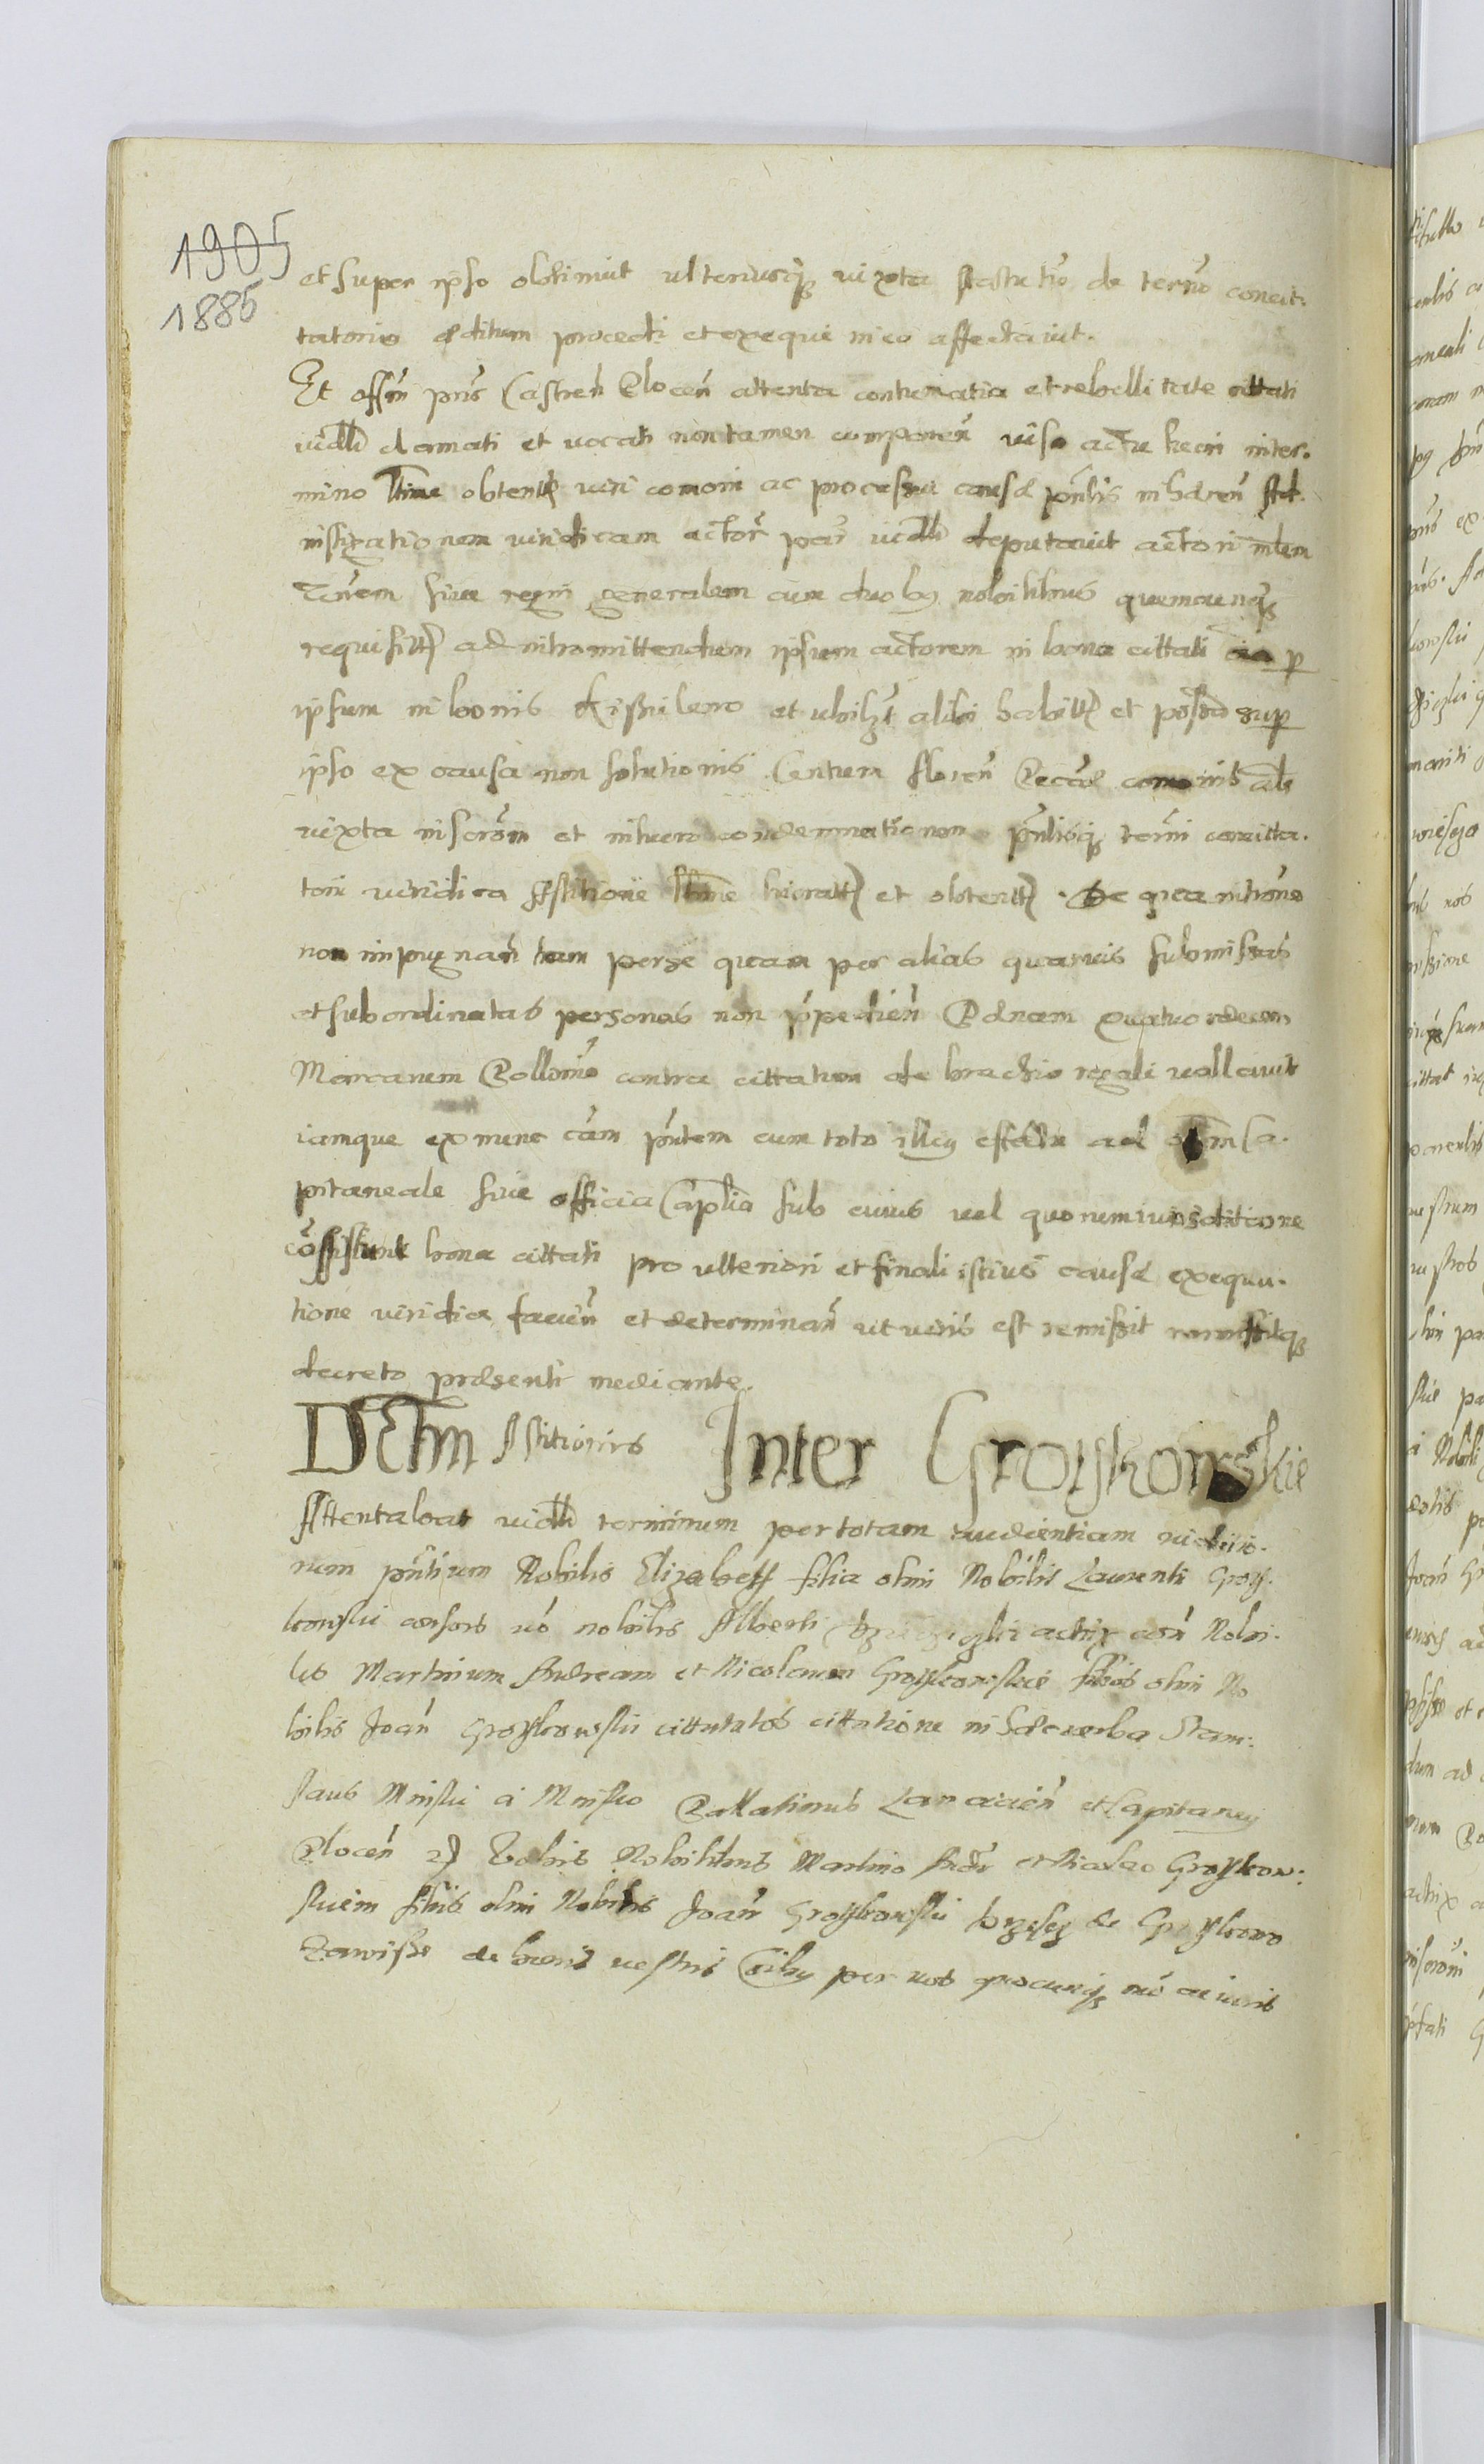 1905
1885
et super ipso obtinuit ulteriusq iuxta statutu de termo concit.
tatorio editum procedi et exequi in eo affectavit.
Et offm pns Castren Plocen attenta contumatia et rebellitate cittati
iudlr clamati et vocati non tamen comparen viso actu hecin inter.
mino ltime obtent vin comoni ac processu causæ pntis inhæren stat.
instigationem iuridicam actor par iudlr deputavit actori mlem
Tnem sive regni generalem cum duobg nobilibus quemcunq
requisitt ad intromittendum ipsum actorem in bona cittati oia p
ipsum in bonis Kissielewo et ubilzt alibi habitt et possessa sup
ipso ex causa non solutionis Centum floren Pecciæ comonis als
iuxta inscrom et in huero condemnationem pntisq termi concitta.
torii iuridica Astitione ltime lucratt et obtentt. De qua intrõne
non impugnan tam per se quam per alias quasvis submissas
et subordinatas personas non ipedien Pænam quatuordecem
Marcarum Pollomo contra cittatum de brachio regali vallavit
iamque ex nunc cãm pntem cum toto illius effectu ad offm Ca.
pitaneale sive officia Caplia sub cuius vel quorum iurisditione
cõsistunt bona cittati pro ulteriori et finali istius causæ exequu.
tione iuridice facien et determinan ut iuris est remissit remissitq
decreto præsenti mediante.
DCTm Astitionis Inter Groykowskie
Attentabat iudlr terminum per totam audientiam iudicio.
rum pntium Nobilis Elizabett filia olim Nobilis Laurenti Groy.
kowski consors vo nobilis Alberti actrix con Nobi.
les Martinum Andream et Nicolaum Groykowskie filios olim No
bilis Joan Groykowski cittatos cittatione in hæc verba Stani:
slaus Minski a Minsko Pallatinus Lanciccien et Capitaneus
Plocen Vobis Nobilibus Martino Andr et Nicolao Groykow:
skiem filiis olim Nobilis Joan Groykowski de Groykowo
Zawisse de bonis vestris oibg per vos procuriq mo ac iuris